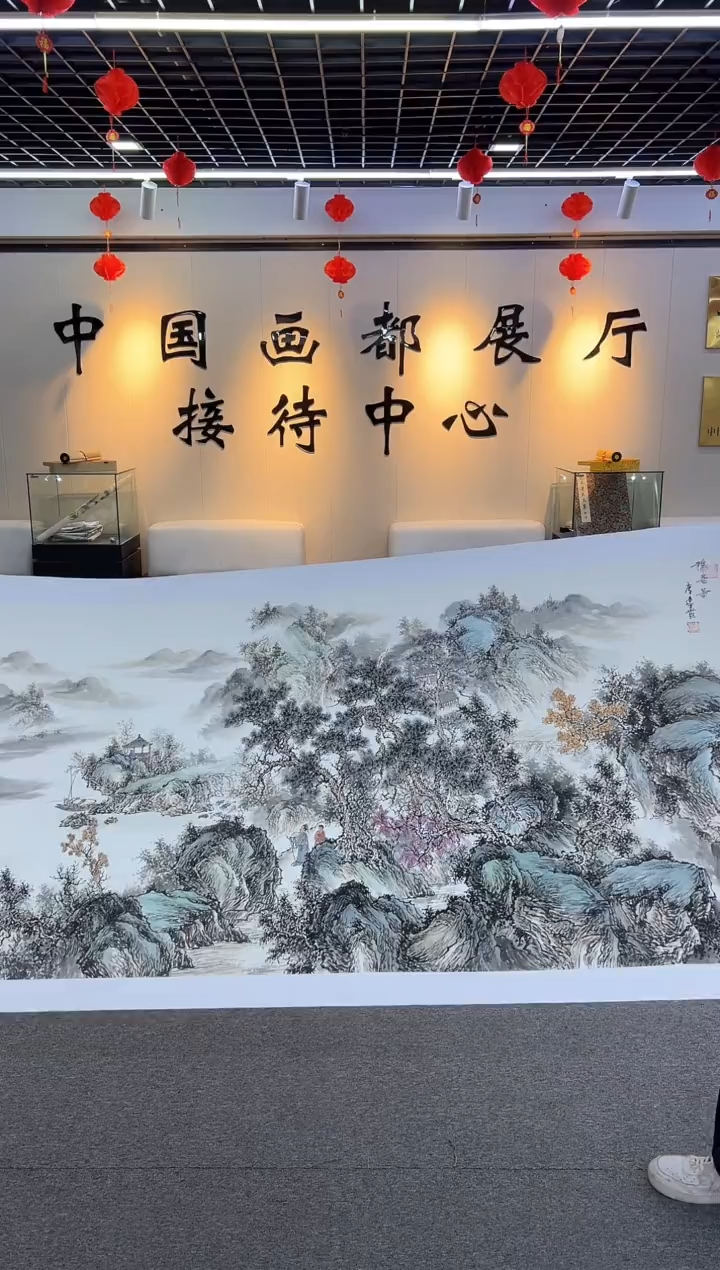 中国画都展厅
接待中心